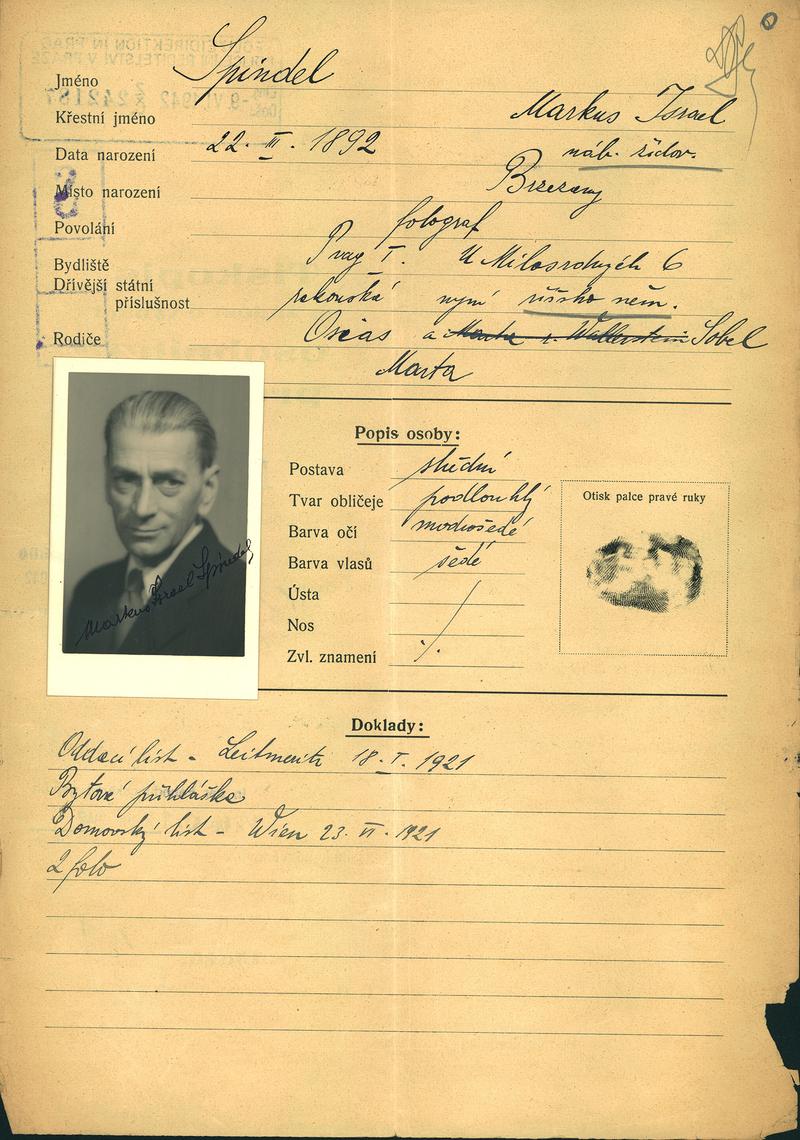 Jméno Spindel
Křestní jméno Markus Israel
Data narození 22. III. 1892 náb. židov.
Místo narození Brzezany
Povolání fotograf
Bydliště Prag I. U Milosrdných 6
Dřívější státní
příslušnost rakouská nyní říšsko něm.
Rodiče Osias a Sobel
Marta
Popis osoby:
Postava střední
Tvar obličeje podlouhlý
Barva očí modrošedé
Barva vlasů šedé
Ústa /
Nos
Zvl. znamení ./.
Otisk palce pravé ruky
Markus Israel Spindel
Doklady:
Oddací list - Leitmeritz 18. I. 1921
Bytová přihláška
Domovský list - Wien 23. VI. 1921
2 foto